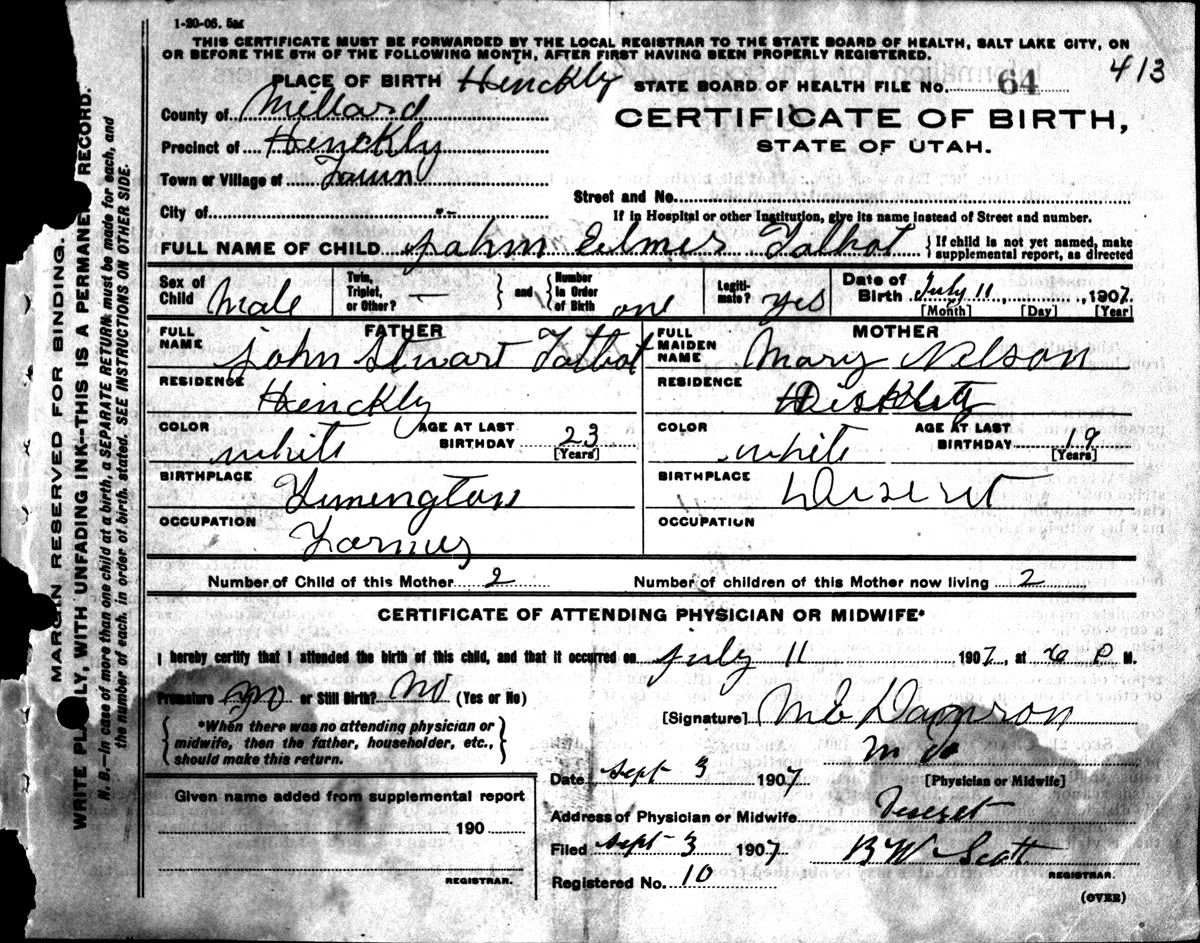 1-20-06. 5M
THIS CERTIFICATE MUST BE FORWARDED BY THE LOCAL REGISTRAR TO THE STATE BOARD OF HEALTH, SALT LAKE CITY, ON
OR BEFORE THE 5TH OF THE FOLLOWING MONTH, AFTER FIRST HAVING BEEN PROPERLY REGISTERED.
413
PLACE OF BIRTH Hinckly
STATE BOARD OF HEALTH FILE No. 64
County of Millard
CERTIFICATE OF BIRTH,
Precinct of Hinckly
STATE OF UTAH.
Town or Village of Town
Street and No.
City of
If in Hospital or other Institution, give its name instead of Street and number.
FULL NAME OF CHILD John Elmer Talbot
{If child is not yet named, make
supplemental report, as directed
Sex of Child Male
Twin, Triplet, or Other? —
and
Number in Order of Birth one
Legiti-mate? yes
Date of Birth July 11, 1907
[Month] [Day] [Year]
FATHER
FULL NAME John Stuart Talbot
RESIDENCE Hinckly
COLOR white
AGE AT LAST BIRTHDAY 23
[Years]
BIRTHPLACE
OCCUPATION Farmer
MOTHER
FULL MAIDEN NAME Mary Nelson
RESIDENCE
COLOR white
AGE AT LAST BIRTHDAY 19
[Years]
BIRTHPLACE Deseret
OCCUPATION
Number of Child of this Mother 2
Number of children of this Mother now living 2
CERTIFICATE OF ATTENDING PHYSICIAN OR MIDWIFE*
I hereby certify that I attended the birth of this child, and that it occurred on July 11 1907, at 6 P M.
Premature No or Still Birth? No (Yes or No)
{*When there was no attending physician or
midwife, then the father, householder, etc.,
should make this return.}
[Signature] M E Damron
M D
[Physician or Midwife]
Date Sept 3 1907
Given name added from supplemental report
190
REGISTRAR.
Address of Physician or Midwife Deseret
Filed Sept 3 1907
B W Scott
REGISTRAR.
Registered No. 10
(OVER)
MARGIN RESERVED FOR BINDING.
WRITE PLAINLY, WITH UNFADING INK--THIS IS A PERMANENT RECORD.
N. B.—In case of more than one child at a birth, a SEPARATE RETURN must be made for each, and
the number of each, in order of birth, stated. SEE INSTRUCTIONS ON OTHER SIDE.